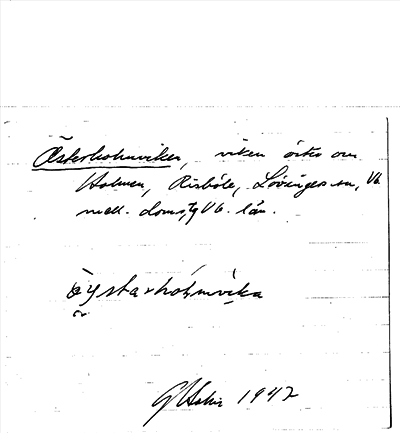 Österholmviken, viken öster om
Holmen, Risböle, Lövångers sn, Vb
mell. doms, Vb. län.
öystarhólmvika
G Holm 1947